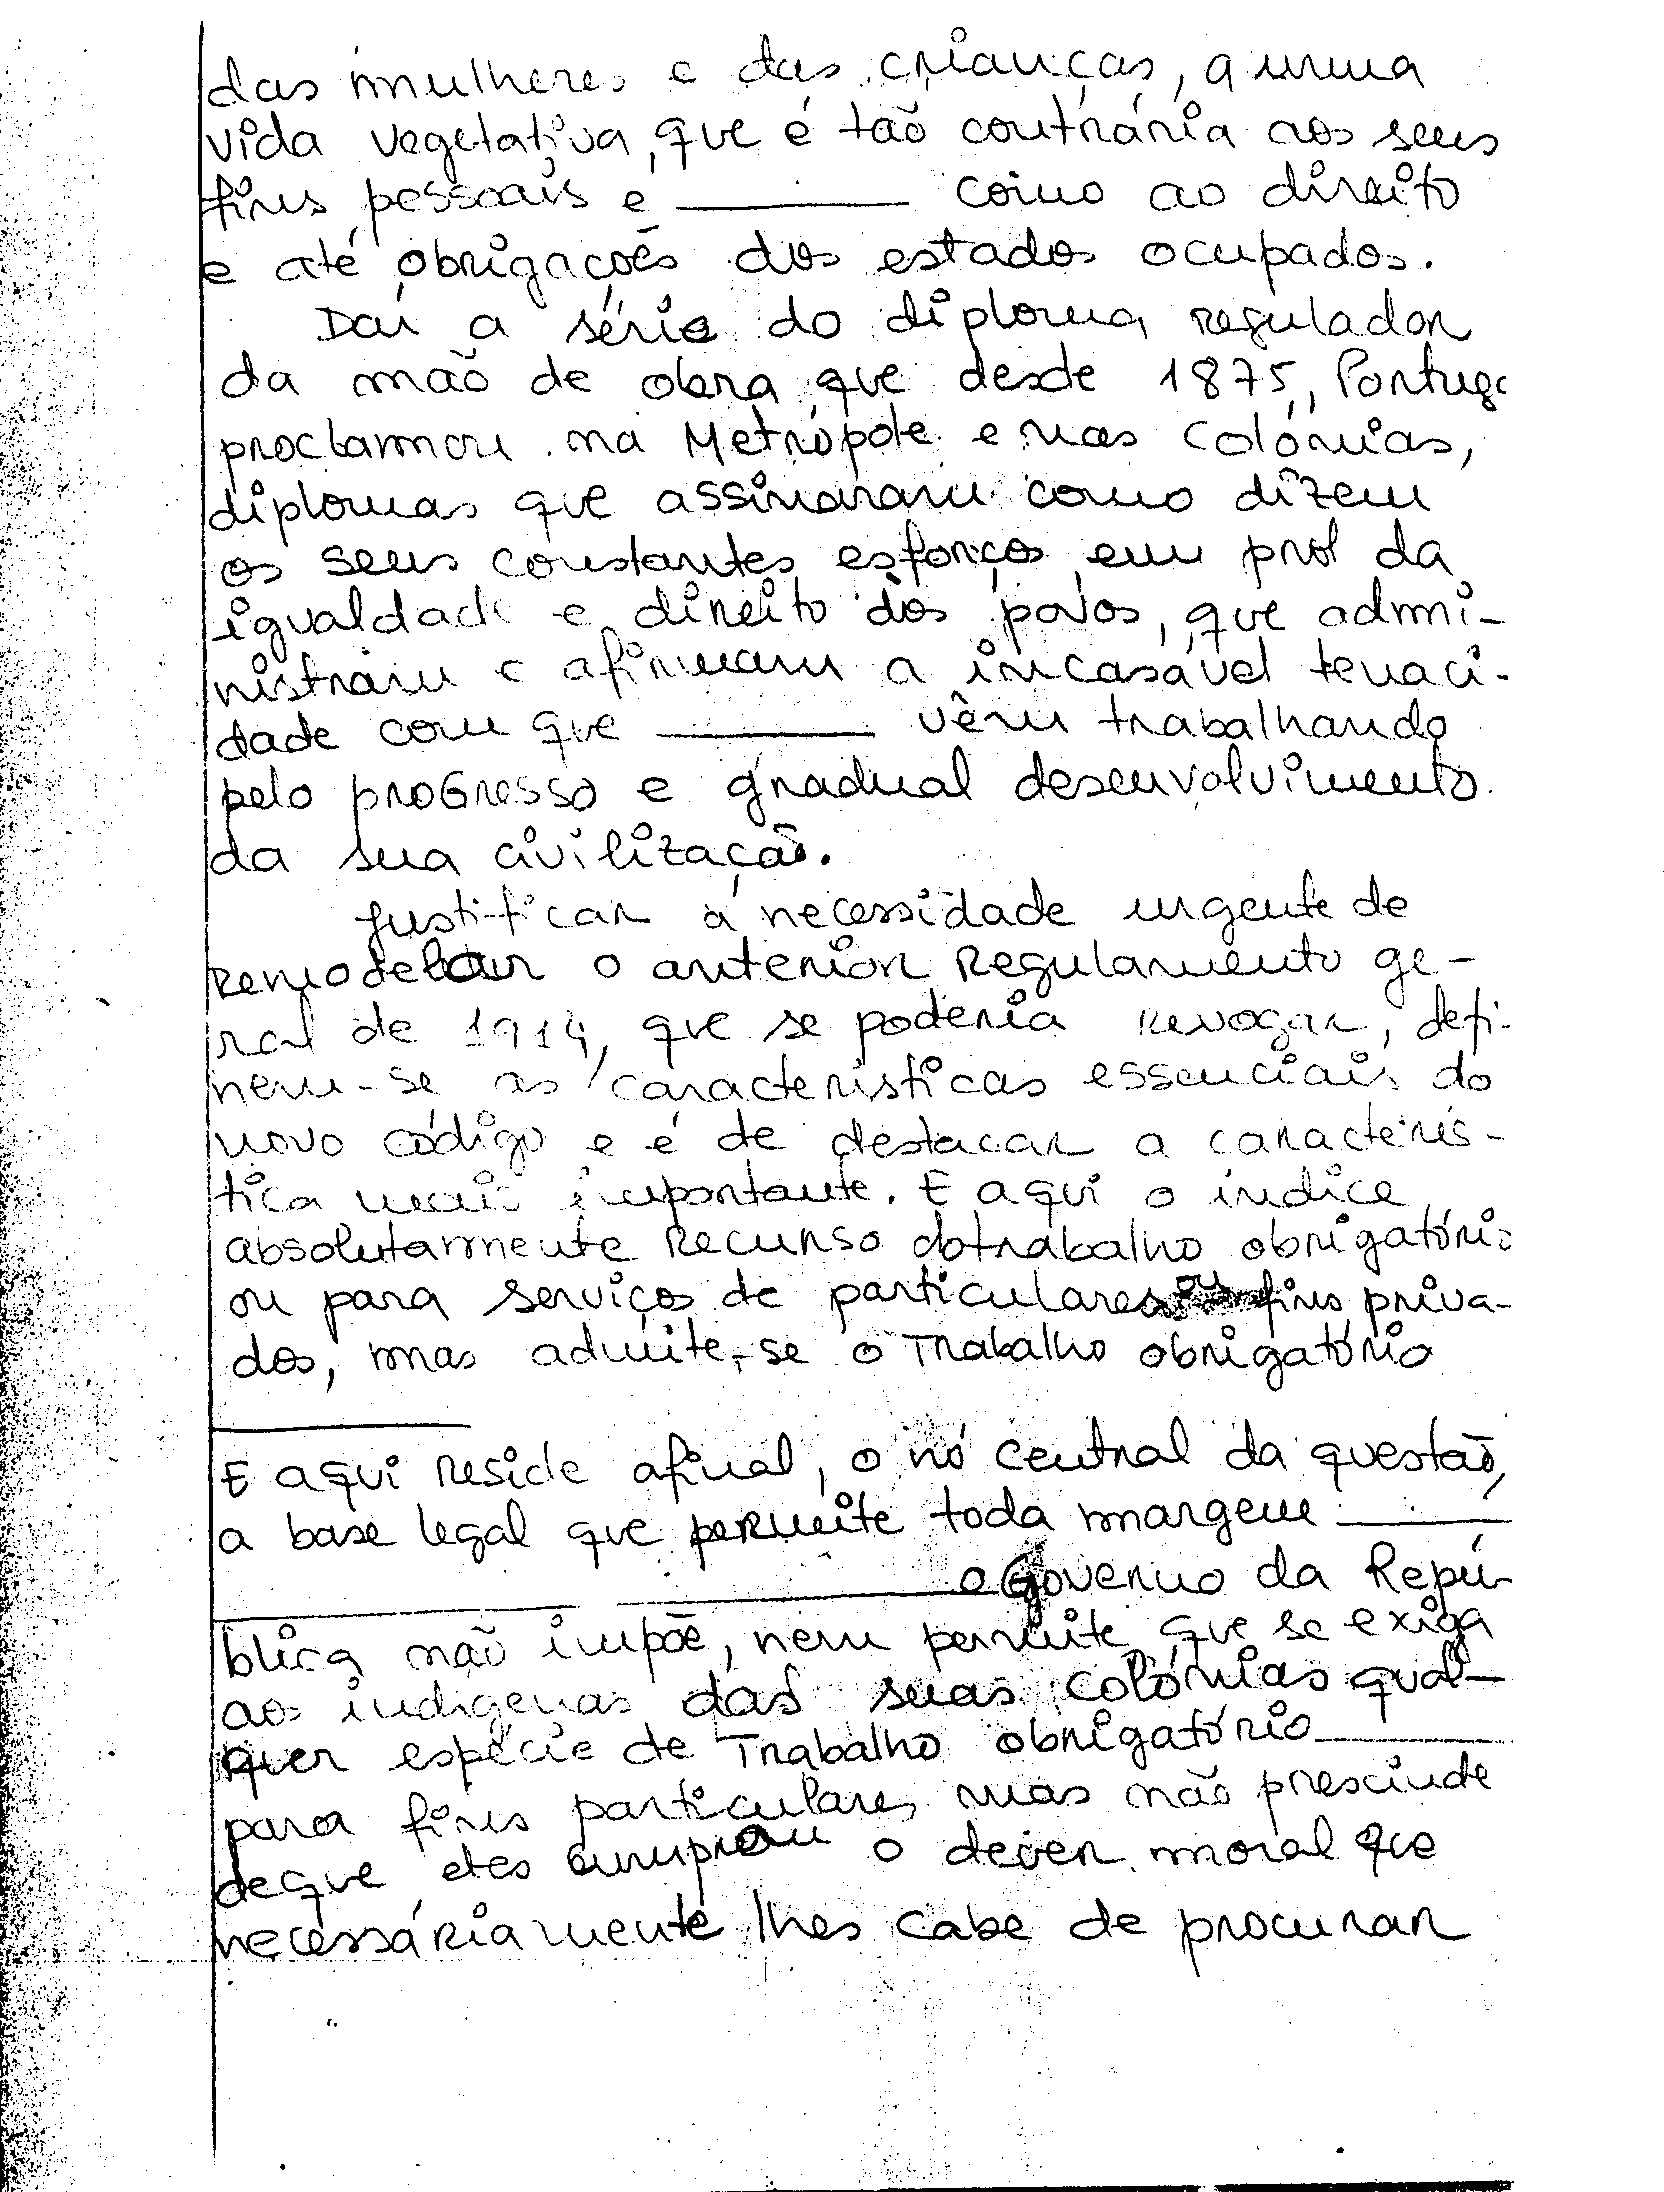 das mulheres e das crianças, a uma
vida vegetativa, que é tão contrária aos seus
fins pessoais e ______ como ao direito
e até obrigações dos estados ocupados.
Daí a série do diploma regulador
da mão de obra que desde 1875, Portuga
proclamou na Metrópole e nas Colónias,
diplomas que assinaram como dizem
os seus constantes esforços em prol da
igualdade e direito dos povos, que admi-
nistram e afirmam a incasável tenaci-
dade com que ______ vêm trabalhando
pelo progresso e gradual desenvolvimento
da sua civilização.
Justificar a necessidade urgente de
remodelar o anterior Regulamento ge-
ral de 1914, que se poderia revogar, defi-
nem-se as características essenciais do
novo código e é de destacar a caracterís-
tica mais importante. E aqui o índice
absolutamente Recurso do trabalho obrigatório
ou para serviços de particulares ou fins priva-
dos, mas admite-se o Trabalho obrigatório
______
E aqui reside afinal, o nó central da questão,
a base legal que permite toda margem ______
______ ______ o Governo da Repú-
blica não impõe, nem permite que se exiga
aos indígenas das suas colónias qual-
quer espécie de Trabalho obrigatório ______
para fins particulares, mas não prescinde
de que eles cumpram o dever moral que
necessáriamente lhes cabe de procurar